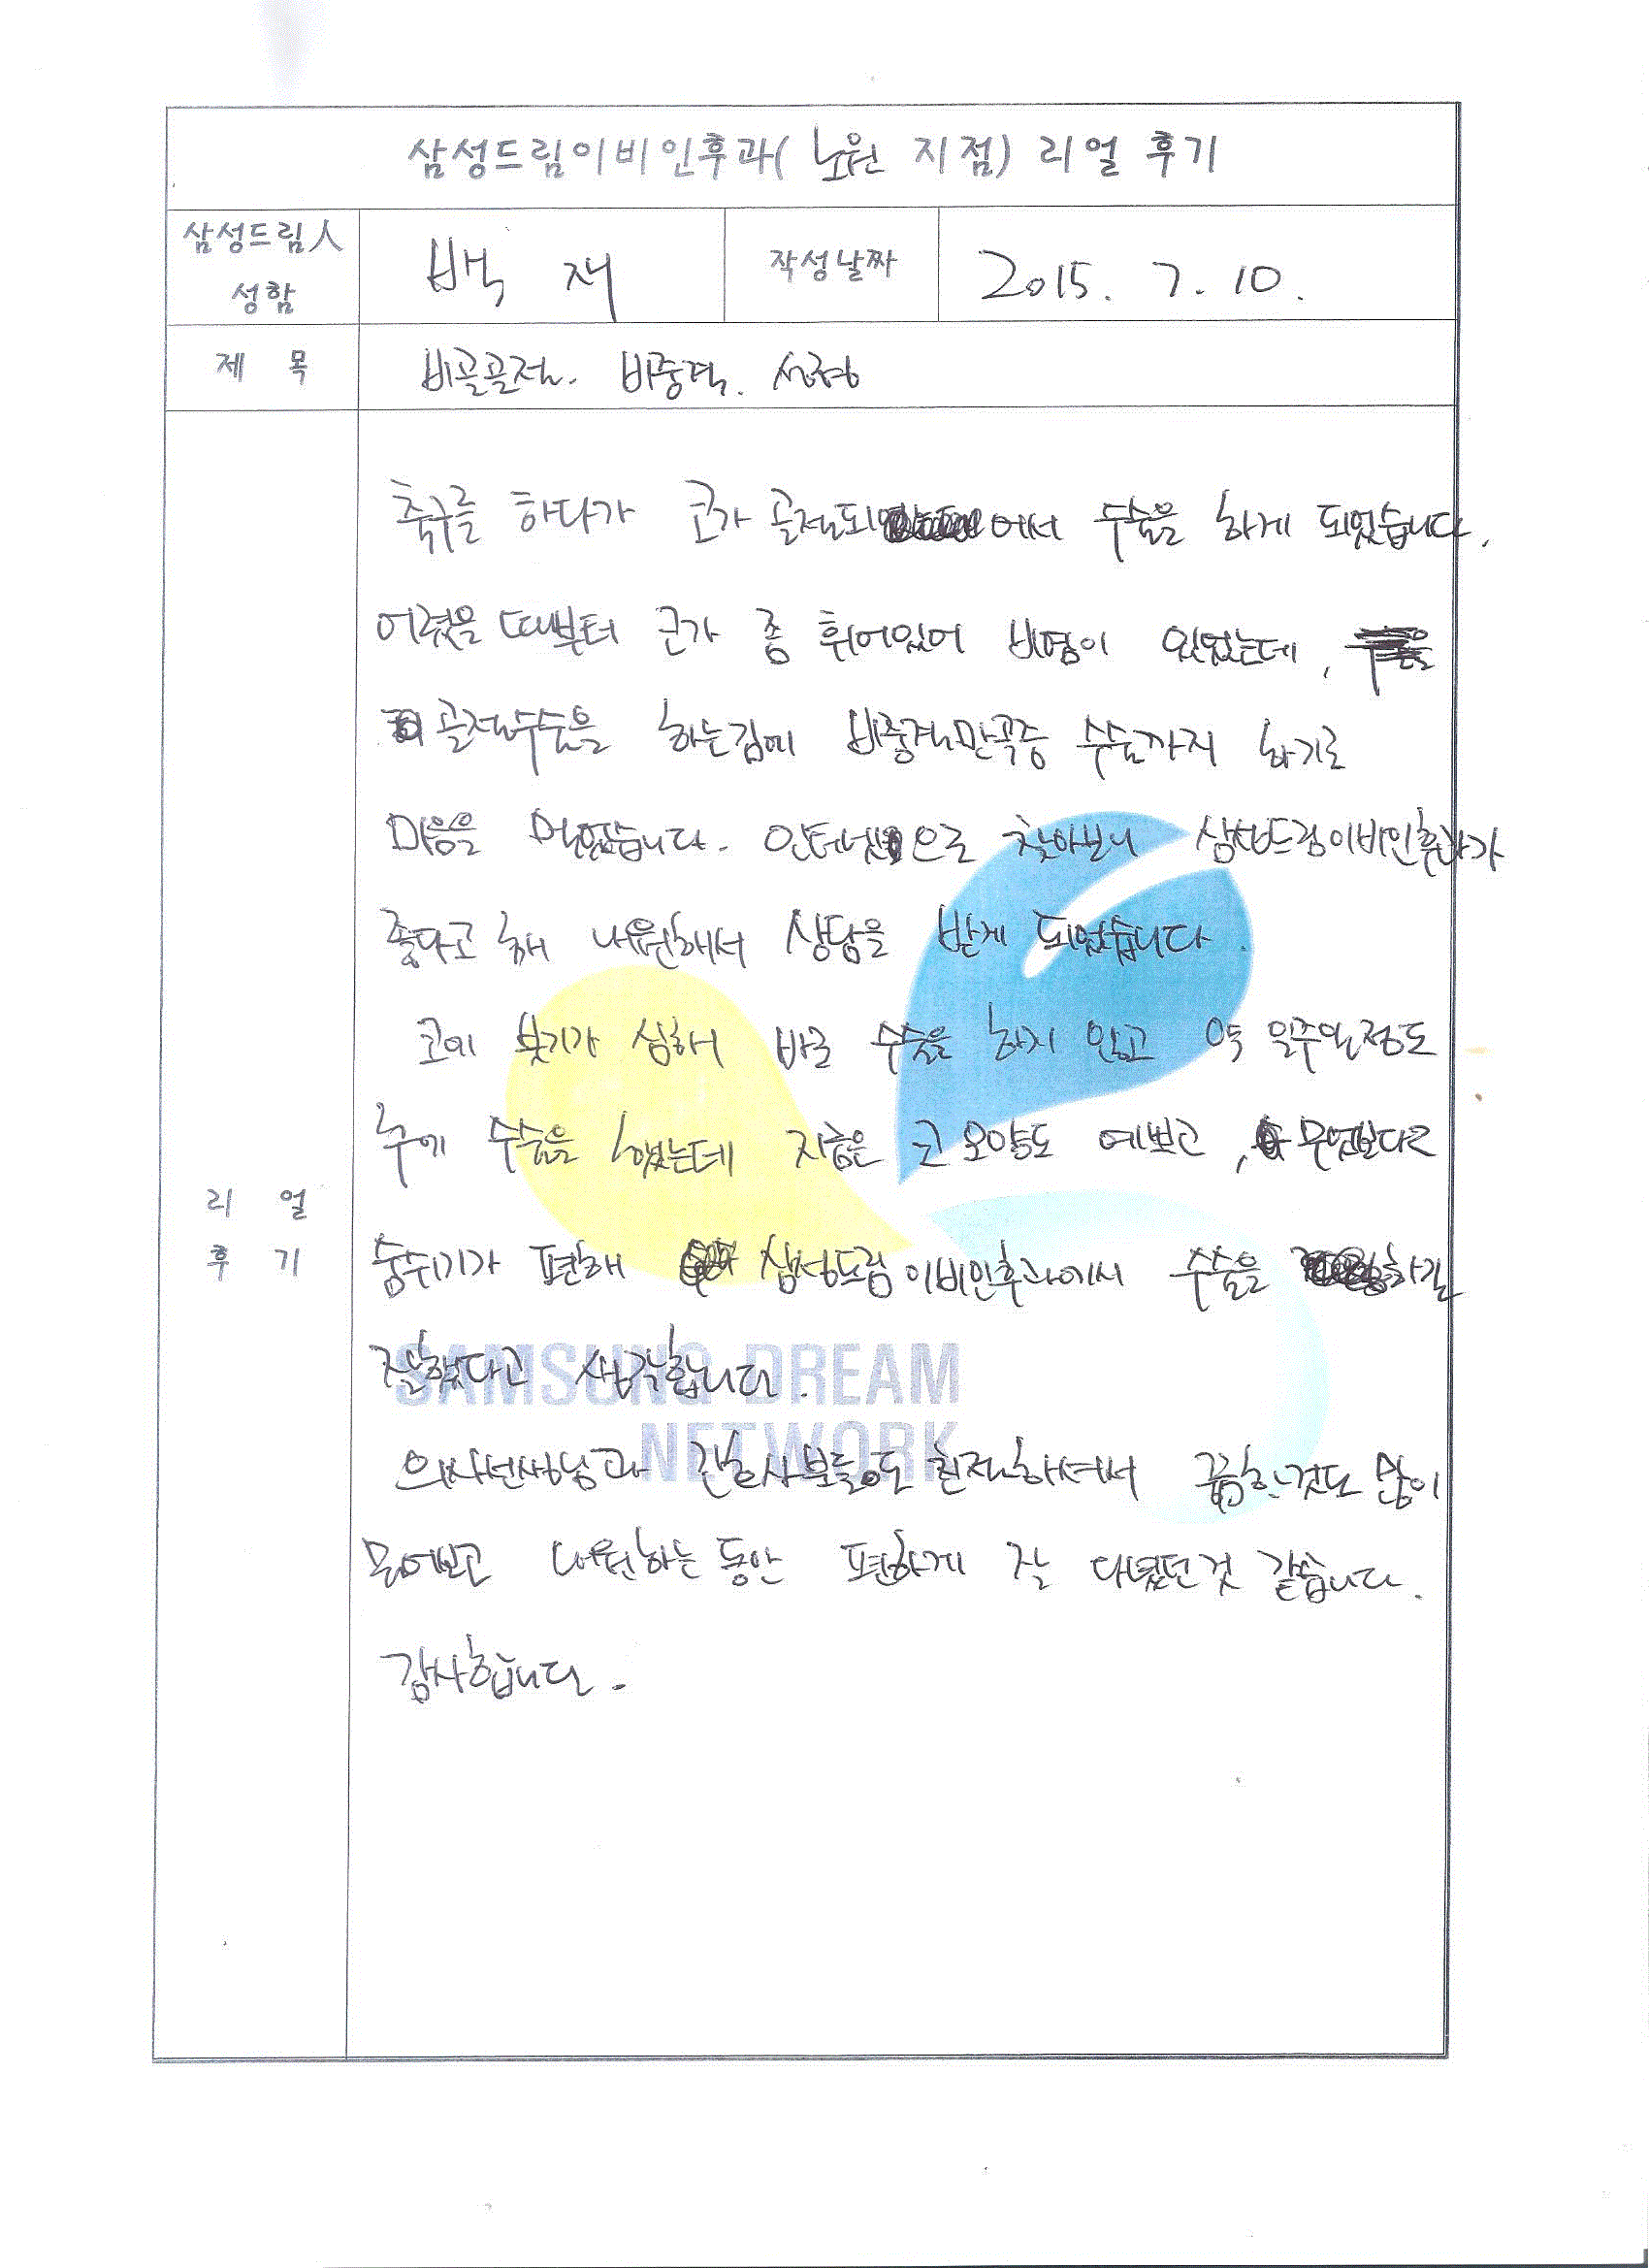 삼성드림이비인후과( 노원 지점) 리얼 후기
삼성드림人
성함
백 재
작성날짜
2015. 7. 10.
제 목
비골골절. 비중격. 성형
축구를 하다가 코가 골절되어서 수술을 하게 되었습니다.
어렸을 때부터 코가 좀 휘어있어 비염이 있었는데,
골절수술을 하는김에 비중격만곡증 수술까지 하기로
마음을 먹었습니다. 인터넷으로 찾아보니 삼성드림이비인후과가
좋다고 해 내원해서 상담을 받게 되었습니다.
코에 붓기가 심해서 바로 수술을 하지 않고 약 일주일정도
후에 수술을 했는데 지금은 코 모양도 예쁘고, 무엇보다도
숨쉬기가 편해 삼성드림이비인후과에서 수술을 하길
잘했다고 생각합니다.
의사선생님과 간호사분들도 친절하셔서 궁금한것도 많이
물어보고 내원하는 동안 편하게 잘 다녔던것 같습니다.
감사합니다.
리 얼
후 기
SAMSUNG DREAM
NETWORK